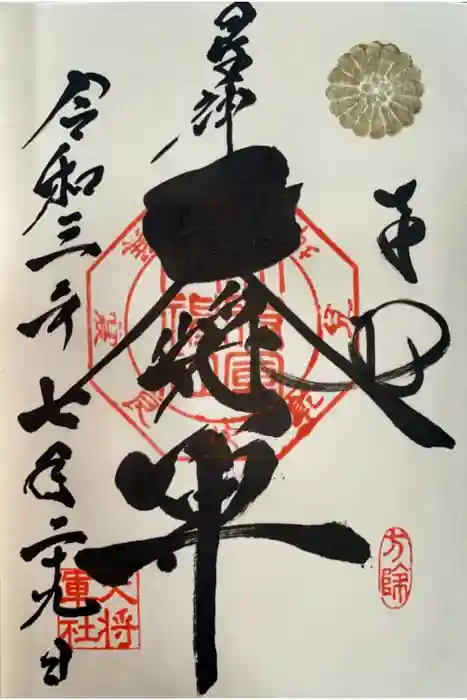 奉拝
方除
星神
大将軍
令和三年七月二十九日
大将軍社